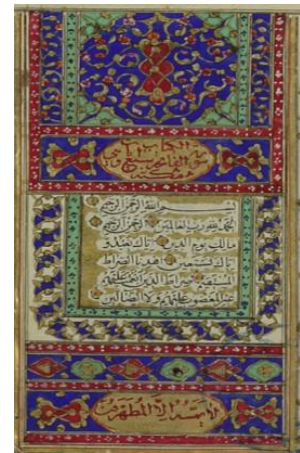 بسم الله الرحمن الرحيم
الحمد لله رب العالمين الرحمن الرحيم
مالك يوم الدين اياك نعبد و
اياك نستعين اهدنا الصراط
المستقيم صراط الذين انعمت عليهم
غير المغضوب عليهم ولا الضالين
لا يمسه الا المطهرون